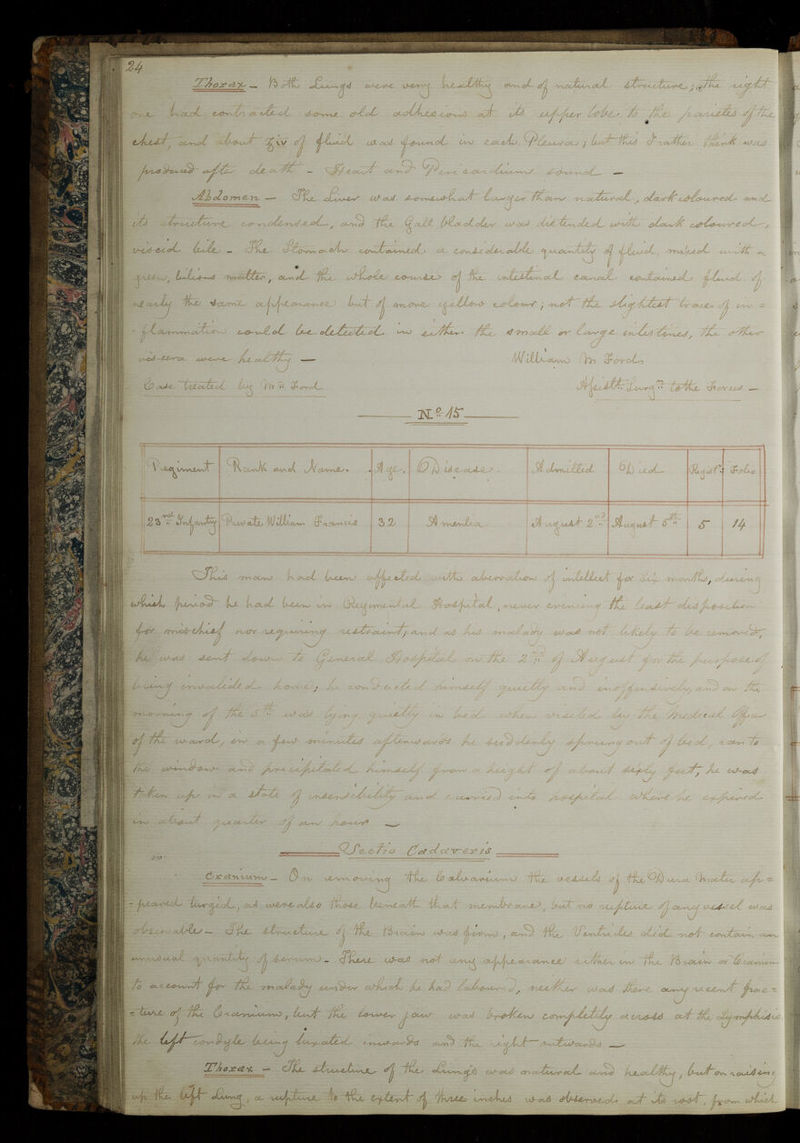 24
Thorax - Both Lungs were very healthy and of natural structure; the right
one had contracted some old adhesions at its upper lobe to the parietes of the
chest, and about ℥iv of fluid was found in each Pleura; but this I rather think was
produced after death - Heart and Pericardium sound -
Abdomen - The Liver was somewhat larger than natural, dark coloured and
its structure condensed, and the Gall bladder was distended with dark coloured,
viscid bile - The Stomach contained a considerable quantity of fluid, mixed with a
green, bilious matter, and the whole course of the intestinal canal contained fluid of
nearly the same appearance but of a more yellow colour; not the slightest trace of in=
=flammation could be detected in either the small or large intestines, the other
viscera were healthy -
William M Ford
Case treated by Mr Ford
Assistt Surgn to the Forces -
No 15
Regiment Rank and Name. Age. Disease. Admitted Died Regist: Folio
23rd Infantry Private William Francis 32 Amentia August 2nd August 5th 5 14
This man had been affected with aberration of intellect for six months, during
which period he had been in Regimental Hospital, never evincing the least disposition
for mischief nor requiring restraint, and as his malady was not likely to be removed,
he was sent down to General Hospital on the 2nd of August for the purpose of
being invalided home; he conducted himself quietly and inoffensively, and on the
morning of the 5th was lying quietly in bed when visited by the Medical Officer
of the ward, in a few minutes afterwards he suddenly sprung out of bed, ran to
the window and precipitated himself from a height of about sixty feet, he was
taken up in a state of insensibility and carried into hospital where he expired
in about quarter of an hour -
Sectio Cadaveris
Cranium - On removing the Calvarium the vessels of the Dura Mater ap=
=peared turgid, as were also those beneath that membrane, but no rupture of any vessel was
observable - The structure of the Brain was firm, and the Ventricles did not contain an
unusual quantity of serum - There was not any appearance either in the Brain or Cranium
to account for the malady under which he had laboured, neither was there any recent frac=
=ture of the Cranium, but the lower jaw was broken completely across at the Symphisis
the left condyle being luxated inwards and the right outwards -
Thorax - The structure of the Lungs was natural and healthy, but on raising
up the left Lung, a rupture to the extent of three inches was observed at its root, from which